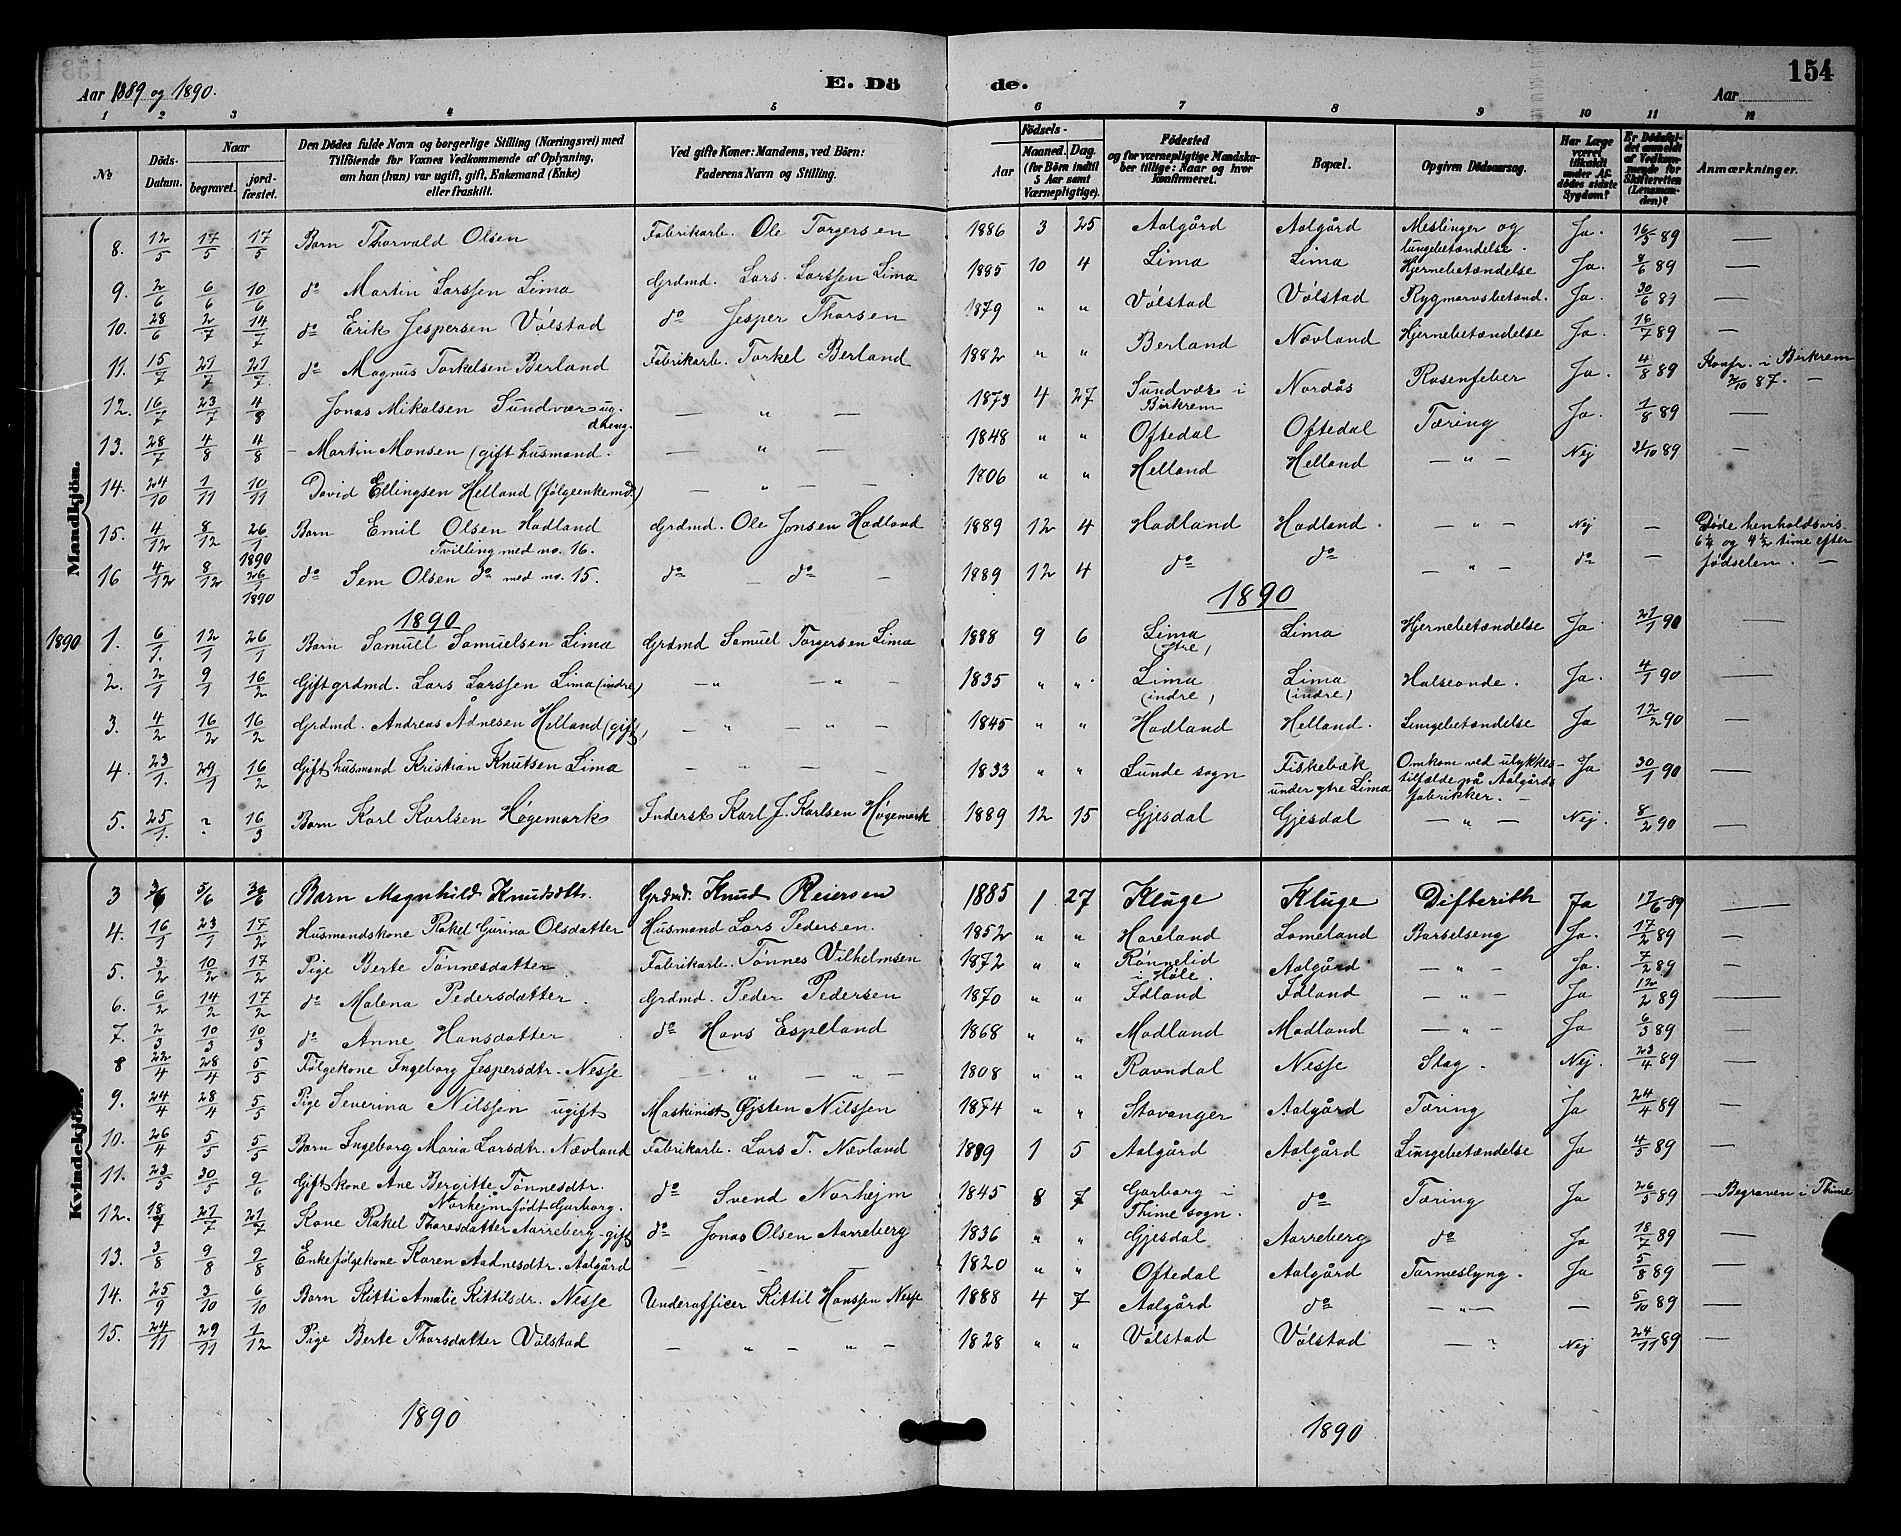 Aar 1889 og 1890.
E. Dö de.
154
Aar
1 2 3 4 5 6 7 8 9 10 11 12
No
Döds-Datum.
Naar
begravet.
jord-fæstet.
Den Dödes fulde Navn og borgerlige Stilling (Næringsvei) med
Tilföiende for Voxnes Vedkommende af Oplysning,
om han (hun) var ugift, gift, Enkemand (Enke)
eller fraskilt.
Ved gifte Koner: Mandens, ved Börn:
Faderens Navn og Stilling.
Födsels-
Aar
Maaned. Dag.
(for Börn indtil
5 Aar samt
Værnepligtige).
Födested
og for værnepligtige Mandska-
ber tillige: Naar og hvor
konfirmeret.
Bopæl.
Opgiven Dödsaarsag.
Har Læge
været
tilkaldt
under Af-
dödes sidste
Sygdom?
Er Dödsfal-
det anmeldt
af Vedkom-
mende for
Skifteretten
(Lensman-
den)?
Anmærkninger.
Mandkjön.
8. 12/5 17/5 17/5 Barn Thorvald Olsen Fabrikarb. Ole Torgersen 1886 3 25 Aalgård Aalgård Meslinger og lungebetændelse. Ja. 16/5 89 —
9. 2/6 6/6 10/6 do Martin Larssen Lima Grdmd. Lars Larssen Lima 1885 10 4 Lima Lima Hjernebetændelse Ja. 8/6 89 —
10. 28/6 2/7 14/7 do Erik Jespersen Vølstad do Jesper Thorsen 1879 " " Vølstad Vølstad Rygmarvsbetænd. Ja. 30/6 89 —
11. 15/7 21/7 21/7 do Magnus Torkelsen Berland Fabrikarb. Torkel Berland 1882 " " Berland Nævland Hjernebetændelse Ja. 16/7 89 —
12. 16/7 23/7 4/8 Jonas Mikalsen Sundvær ug. dreng. — " — 1873 4 27 Sundvær i Birkrem Nordås Rosenfeber Ja. 4/8 89 Konfr. i Birkrem 2/10 87. —
13. 28/7 4/8 4/8 - Martin Monsen (gift husmand. — " — 1848 " " Oftedal Oftedal Tæring Ja. 1/8 89 —
14. 24/10 1/11 10/11 David Ellingsen Helland (følgeenkemd.) — " — — 1806 " " Helland Helland — " — Nej 31/10 89 —
15. 4/12 8/12 26/1 1890 Barn Emil Olsen Hadland Tvilling med no. 16. Grdmd. Ole Jonsen Hadland 1889 12 4 Hadland Hadland. — " — Nej — Døde henholdsvis
16 4/12 8/12 26/1 1890 do Sem Olsen do med no. 15. do — do — 1889 12 4 do do — " — do — 6 1/4 og 4 1/2 time efter fødselen. —
1890 1890
1890 1. 6/1. 12/1 26/1 Barn Samuel Samuelsen Lima Grdmd Samuel Torgersen Lima 1888 9 6 Lima (ytre) Lima Hjernebetændelse Ja 21/1 90 —
2. 2/1 9/1 16/2 Gift grdmd. Lars Larssen Lima (indre) — " — " — 1835 " " Lima (indre) Lima (indre) Halseonde. Ja. 4/1 90 —
3. 4/2 16/2 16/2 Grdmd. Andreas Adnesen Helland (gift) — " — " — 1845 " " Hadland Helland. Lungebetændelse Ja 12/2 90 —
4. 23/1. 29/1 16/2 Gift husmand Kristian Knutsen Lima — " — — 1833 " " Lunde sogn Fiskebæk under ytre Lima Omkom ved ulykkes-tilfælde på Aalgårds fabrikker. — Ja 30/1 90 —
5. 25/1. ? 16/3 Barn Karl Karlsen Høgemark Inderst Karl J. Karlsen Høgemark 1889 12 15 Gjesdal Gjesdal — " — Nej. 8/2 90 —
Kvindekjön.
3 3/6 5/6 30/6 Barn Magnhild Knudsdtr. Grdmd. Knud Reiersen 1885 1 27 Kluge Kluge Difterith Ja 17/6-89 —
4. 16/1 23/1 17/2 Husmandskone Rakel Gurina Olsdatter Husmand Lars Pedersen. 1852 " " Hareland Lomeland Barselseng Ja. 17/2 89 —
5. 3/2 10/2 17/2 Pige Berte Tønnesdatter Fabrikarb. Tønnes Vilhelmsen 1872 " " Rønnelid i Høle. Aalgård — " — Ja. 7/2 89 —
6. 6/2 14/2 17/2 do Malena Pedersdatter. Grdmd. Peder Pedersen 1870 " " Idland Idland — " — Ja 12/2 89 —
7. 2/3 10/3 10/3 do Anne Hansdatter do Hans Espeland 1868 " " Madland Madland — " — Ja 6/3 89 —
8 22/4 28/4 5/5 Følgekone Ingeborg Jespersdtr. Nesse — " — " — 1808 " " Ravndal Nesse Slag. Nej. 23/4 89 —
9. 24/4 28/4 5/5 Pige Severina Nilssen ugift Maskinist Øjsten Nilssen 1874 " " Stavanger Aalgård Tæring Ja 24/4 89 —
10. 26/4 5/5 5/5 Barn Ingeborg Maria Larsdtr. Nævland Fabrikarb. Lars T. Nævland 1889 1 5 Aalgård Aalgård Lungebetændelse Ja 4/5 89 —
11. 23/5 30/5 9/6 Gift kone Ane Bergitte Tønnesdtr. Norhejm født Garborg. do Svend Norhejm 1845 8 7 Garborg i Thime sogn. do Tæring Ja 26/5 89 — Begraven i Thime
12. 18/7 21/7 21/7 Kone Rakel Thoresdatter Aarreberg - gift do Jonas Olsen Aarreberg 1836 " " Gjesdal Aarreberg do Ja 18/7 89 —
13. 3/8 9/8 9/8 Enkefølgekone Karen Aadnesdtr. Aalgård — — 1820 " " Oftedal Aalgård Tarmeslyng. Ja 5/8 89 —
14. 25/9 3/10 6/10 Barn Kitti Amalie Kittilsdr. Nesse Underofficer Kittil Hanssen Nesse 1888 4 7 Aalgård do — " — — 5/10 89 —
15. 24/11 29/11 1/12 Pige Berte Thorsdatter Vølstad — " — " — 1828 " " Vølstad Vølstad — ? Nej 24/11 89 —
1890 1890